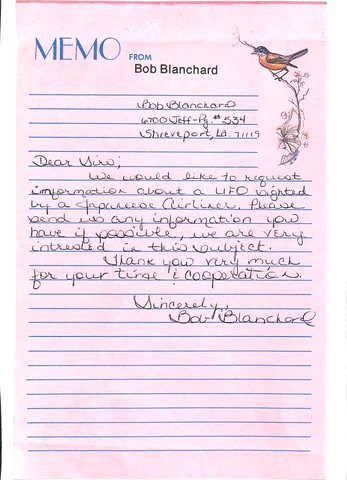 MEMO FROM
Bob Blanchard
Bob Blanchard
6700 Jeff-Pg. #534
Shreveport, LA. 71119
Dear Sirs;
We would like to request
information about a UFO sighted
by a Japaneese Airliner. Please
send us any information you
have if possible, we are very
intrested in this subject.
Thank you very much
for your time & cooperation.
Sincerely,
Bob Blanchard